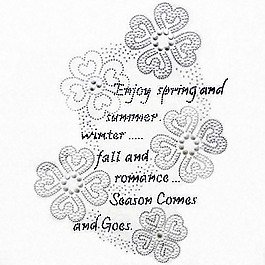 Enjoy spring and
summer.
winter .....
fall and
romance ...
Season Comes
and Goes.